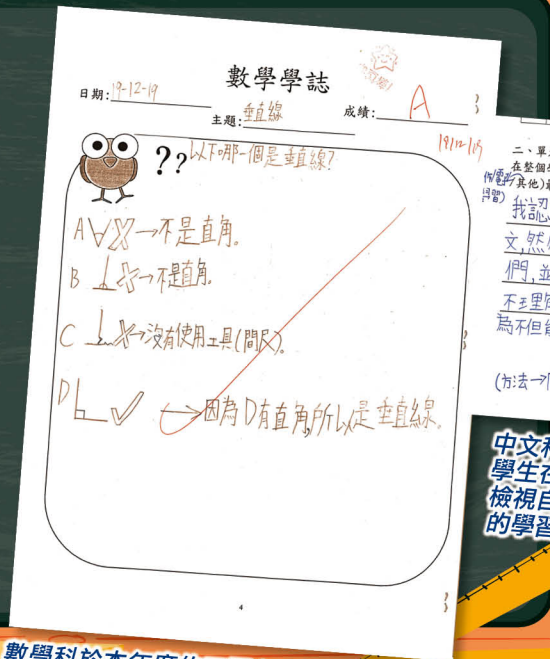 數學學誌
日期:19-12-19
主題:垂直線
成績:A
19/12/19
??以下哪一個是垂直線?
A X→不是直角。
B X→不是直角。
C X→沒有使用工具(間尺)。
D ✓ →因為D有直角,所以是垂直線。
4
二、單
在整個
其他)
我認
文,然
們,並
不理
為不但能
(方法→
中文科
學生在
檢視自
的學習
數學科於本年度